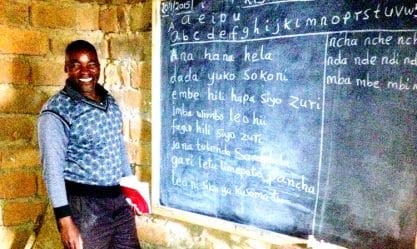 20/1/2015
A a e i o u
A b c d e f g h i j k l m n o p r s t u v w
Ana hana hela
dada yuko sokoni
embe hili hapa siyo zuri
imba wimbo leo hii
fagio hili siyo zuri
jana tulienda
gari letu limepata pancha
leo ni siku ya kusoma
ncha nche nch
nda nde ndi nd
mba mbe mbi m